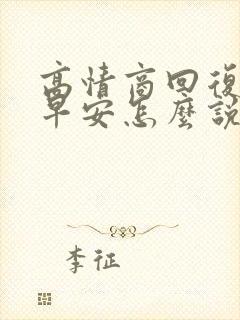 高情商回復
早安怎麼說
李征